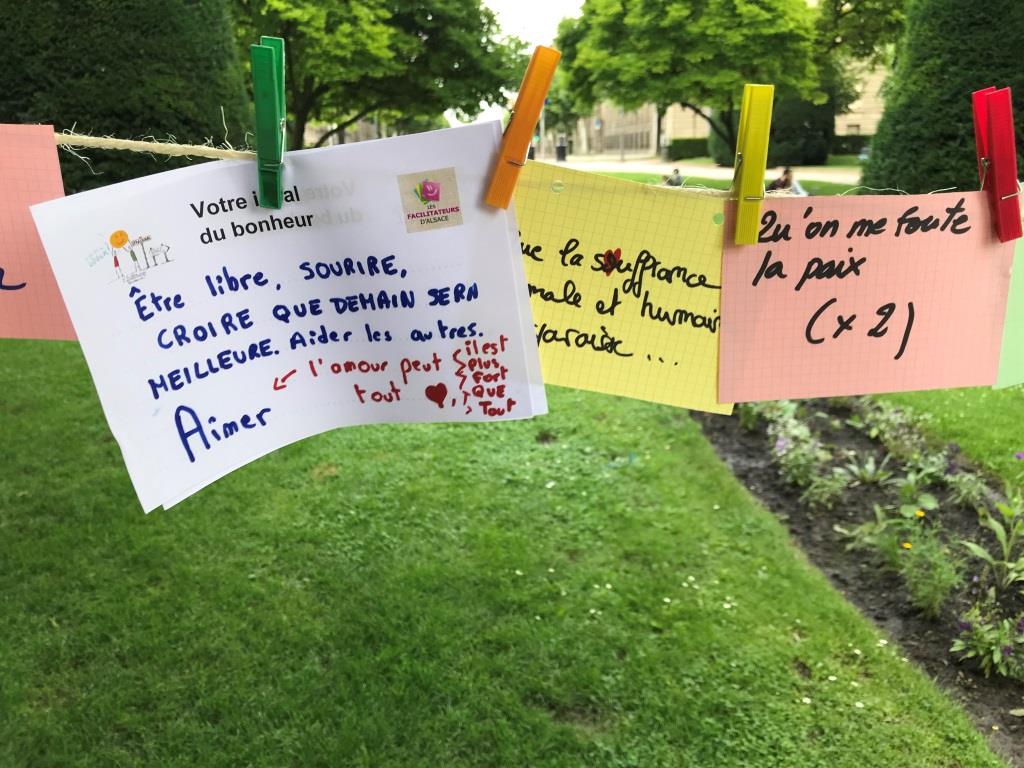 Votre i al
du bonheur
LES
FACILITATEURS
D'ALSACE
Être libre, SOURIRE,
CROIRE QUE DEMAIN SERA
MEILLEURE. Aider les autres.
Aimer
l'amour peut
tout
il est
plus
Fort
QUE
Tout
ue la souffrance
male et humai
Qu'on me foute
la paix
(x 2)